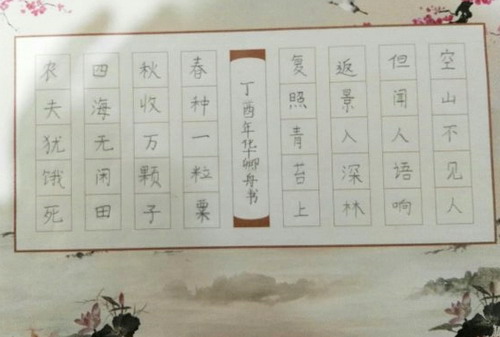 空山不见人
但闻人语响
返景入深林
复照青苔上
丁酉年
舟书
春种一粒粟
秋收万颗子
四海无闲田
农夫犹饿死